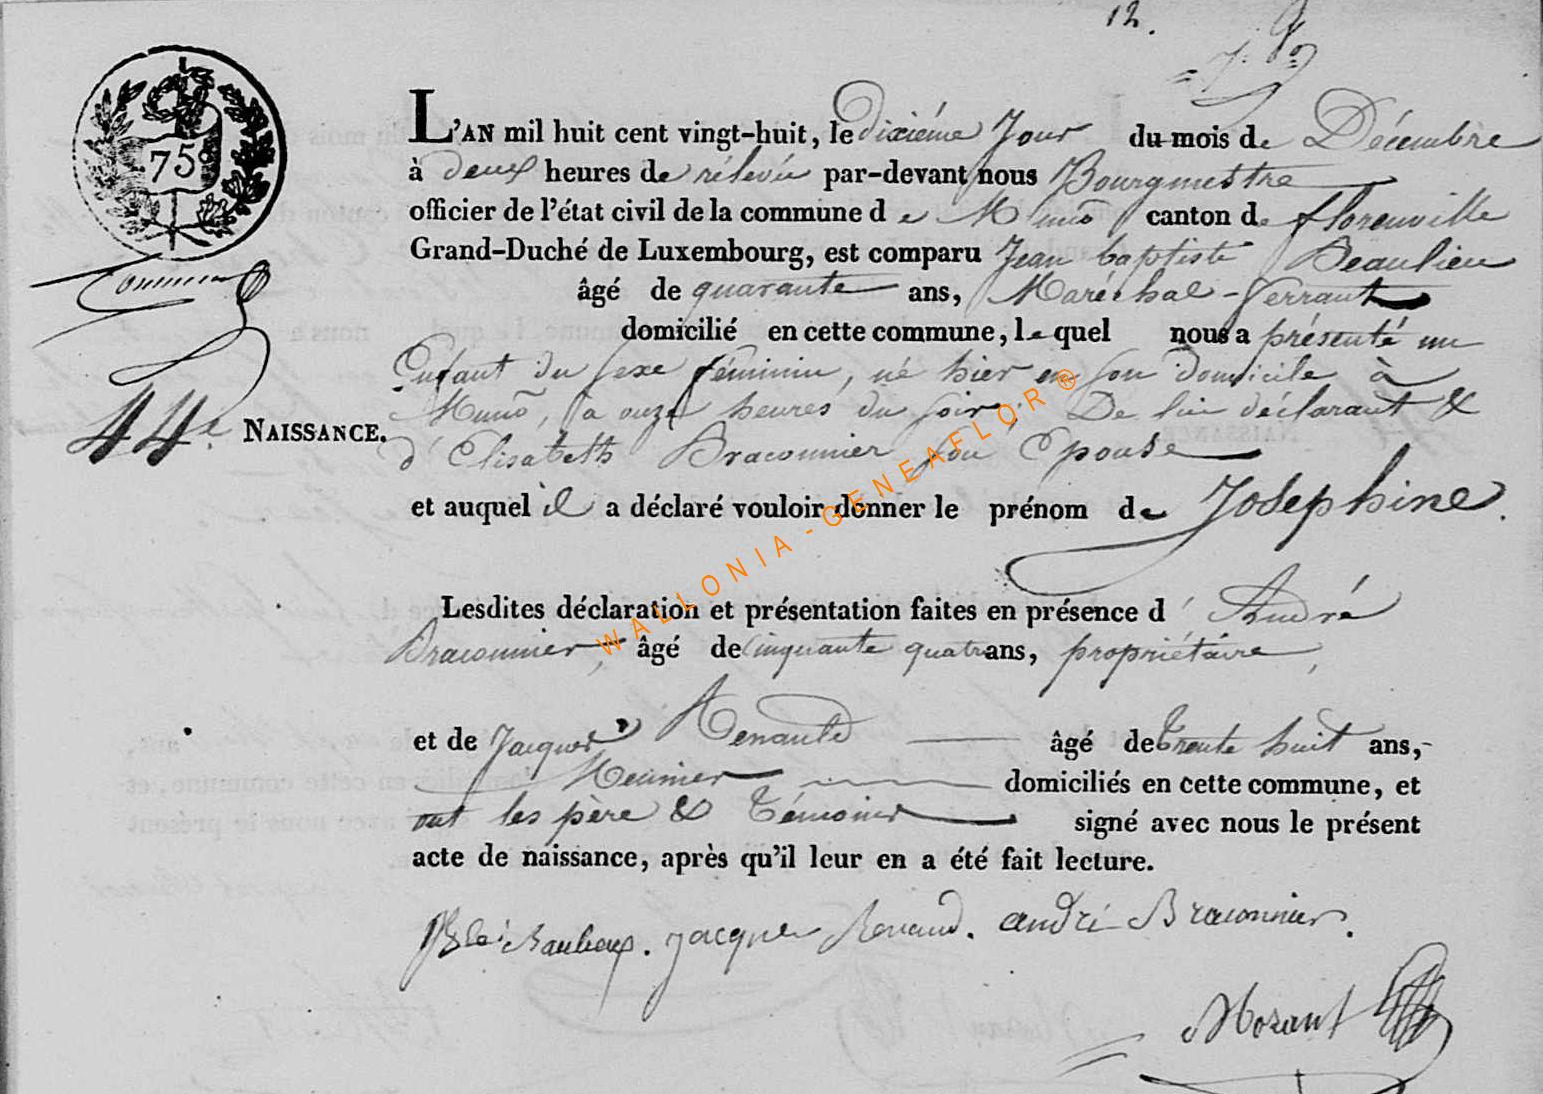 12.
75
L'AN mil huit cent vingt-huit, le dixiéme Jour du mois de Décembre
à deux heures de rélevée par-devant nous Bourgmestre
officier de l'état civil de la commune de Muno canton de florenville
Grand-Duché de Luxembourg, est comparu Jean baptiste Beaulieu
âgé de quarante ans, Maréchal-ferrant
domicilié en cette commune, lequel nous a présenté un
Enfant du sexe féminin, né hier en son domicile à
Muno, à onze heures du soir, De lui déclarant &
44e NAISSANCE. d'Elisabeth Braconnier son Epouse
et auquel il a déclaré vouloir donner le prénom de Josephine.
Lesdites déclaration et présentation faites en présence d'André
Braconnier, âgé de Cinquante quatre ans, propriétaire,
et de Jacques Renauld âgé de Trente huit ans,
Meunier domiciliés en cette commune, et
ont les père & Témoins signé avec nous le présent
acte de naissance, après qu'il leur en a été fait lecture.
jacque Renaud. andré Braconnier.
Mozant
WALLONIA - GENEAFLOR ®